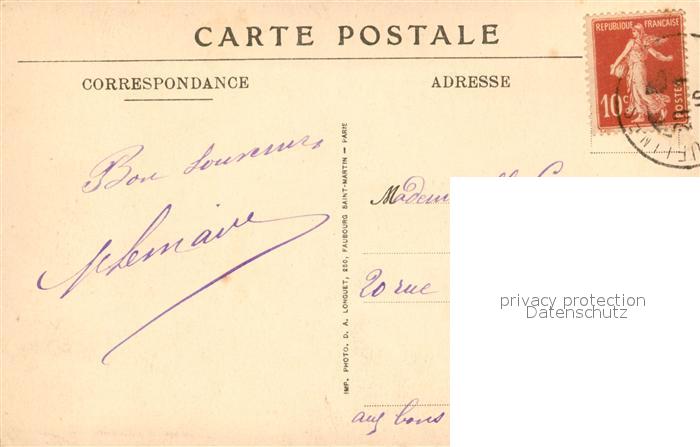 CARTE POSTALE
CORRESPONDANCE
ADRESSE
REPUBLIQUE FRANÇAISE
10c
POSTES
Bon Souvenir
Lemaire
IMP. PHOTO. D. A. LONGUET, 250, FAUBOURG SAINT-MARTIN — PARIS
20 rue
aux bons
privacy protection
Datenschutz